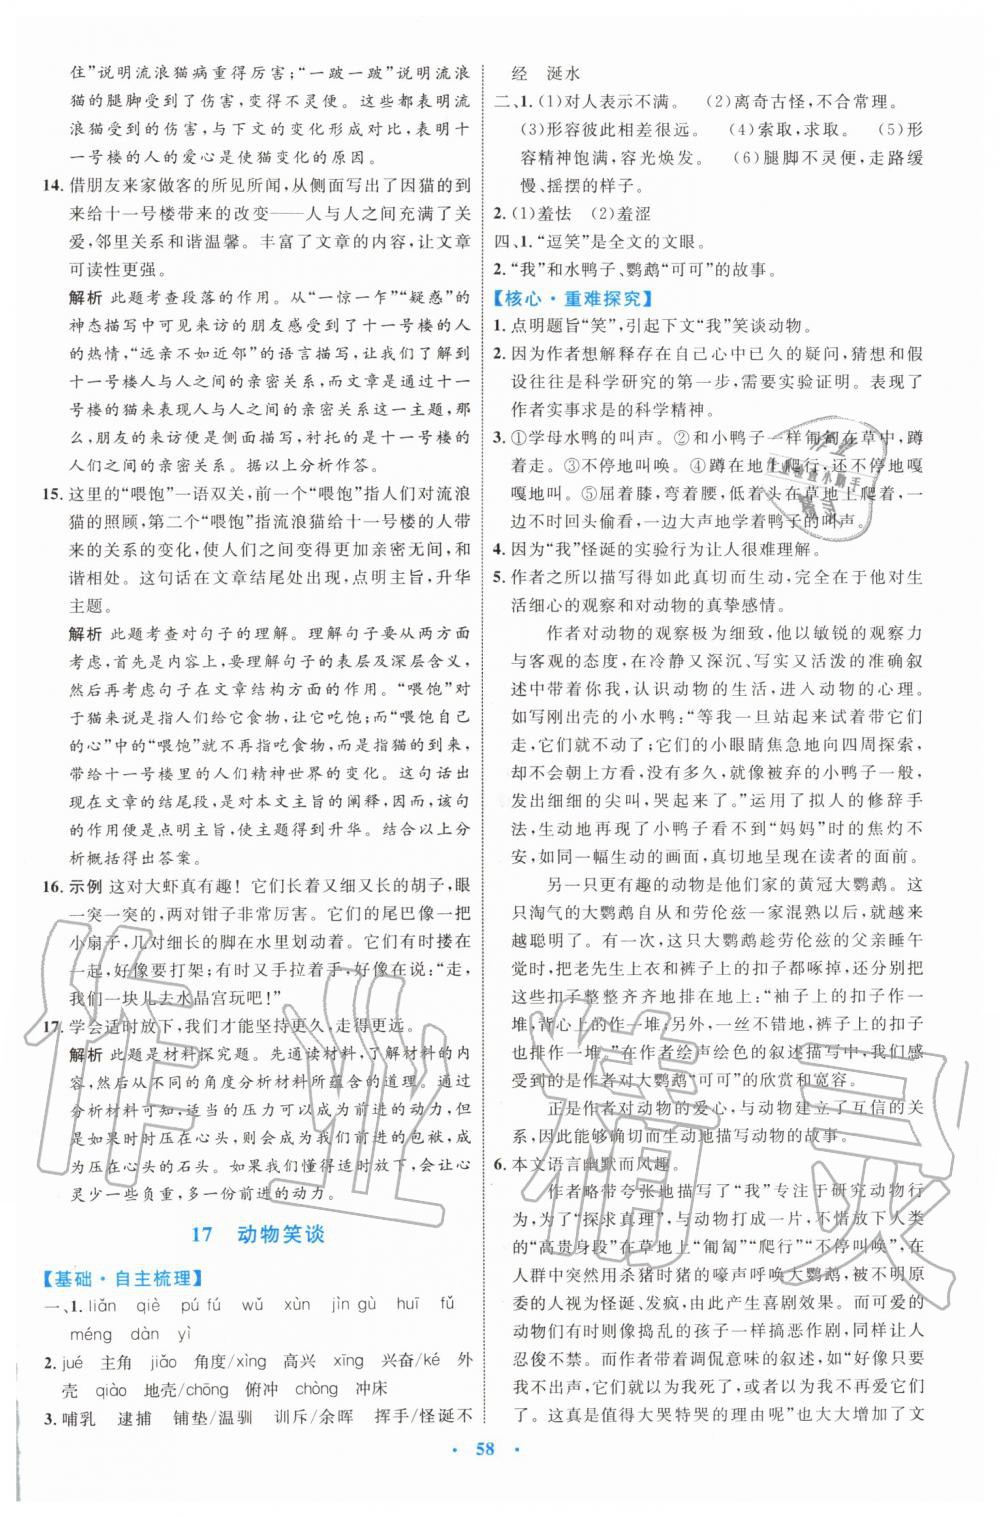 住”说明流浪猫病重得厉害；“一跛一跛”说明流浪
猫的腿脚受了伤害，变得不灵便。这些都表明流
浪猫受到的伤害，与下文的变化形成对比，表明十
一号楼的人的爱心是使猫变化的原因。
14. 借朋友来家做客的所见所闻，从侧面写出了因猫的到
来给十一号楼带来的改变——人与人之间充满了关
爱，邻里关系和谐温馨。丰富了文章的内容，让文章
可读性更强。
解析 此题考查段落的作用。从“一惊一乍”“疑惑”的
神态描写中可见来访的朋友感觉到了十一号楼的人
的热情，“远亲不如近邻”的语言描写，让我们感觉到
十一号楼人与人之间的亲密关系，而文章是通过十一
号楼的猫来表现人与人之间的亲密关系这一主题，那
么，朋友的来访便是侧面描写，衬托的是十一号楼的
人们之间的亲密关系。据以上分析作答。
15. 这里的“喂饱”一语双关，前一个“喂饱”指人们对流浪
猫的照顾，第二个“喂饱”指流浪猫给十一号楼的人带
来的关系的变化，使人们之间的关系更加亲密无间、和
谐相处。这句话在文章结尾处出现，点明主旨，升华
主题。
解析 此题考查对句子的理解。理解句子要从两方面
来考虑，首先是内容，要理解句子的表层及深层含义，
然后再考虑句子在文章结构方面的作用。“喂饱”对
于猫来说是指人们给它食物，让它吃饱；而“喂饱自己
的心”中的“喂饱”就不再指吃食物，而是指猫的到来，
带给十一号楼里的人们精神世界的变化。这句话出
现在文章的结尾段，是对本文主旨的阐释，因此，该句
的作用便是点明主旨，使主题得到升华。结合以上分
析概括得出答案。
16. 示例 这对大虾真有趣！它们长着又细又长的胡子，眼
一突一突的，两对钳子非常厉害。它们的尾巴像一把
小扇子，几对细长的脚在水里划动着。它们有时搂在
一起，好像要打架；有时又手拉着手，好像在说：“走，
我们一块儿去水晶宫玩吧！”
17. 学会适时放下，我们才能坚持更久，走得更远。
解析 此题是材料探究题。先通读材料，了解材料的内
容，然后从不同的角度分析材料所蕴含的道理。通过
分析材料可知，适当的压力可以成为前进的动力，但
是如果时时压在心头，我们就会成为前进的包袱，成
为压在心头的石头。如果我们懂得适时放下，让心
灵少一些负重，多一份前进的动力。
17 动物笑谈
【基础·自主梳理】
一、1. liǎn qiè pú fú wǔ xùn jìn gù huī fǔ
méng dàn yì
2. jué 主角 jiǎo 角度/xìng 高兴 xīng 兴奋/ké 外
壳 qiào 地壳/chōng 俯冲 chòng 冲床
3. 哺乳 逮捕 铺垫/温驯 训斥/余晖 挥手/怪诞不
经 涎水
二、1. (1)对人表示不满。 (2)离奇古怪，不合常理。
(3)形容彼此相差很远。 (4)索取，求取。 (5)形
容精神饱满，容光焕发。 (6)腿脚不灵便，走路缓
慢、摇摆的样子。
2. (1)羞怯 (2)羞涩
四、1. “逗笑”是全文的文眼。
2. “我”和水鸭子、鹦鹉“可可”的故事。
【核心·重难探究】
1. 点明题旨“笑”，引起下文“我”笑谈动物。
2. 因为作者想解释存在自己心中已久的疑问，猜想和假
设往往是科学研究的第一步，需要实验证明。表现了
作者实事求是的科学精神。
3. ①学母水鸭的叫声。②和小鸭子一样匍匐在草中，蹲
着走。③不停地叫唤。④蹲在地上爬行，还不停地嘎
嘎地叫。⑤屈着膝，弯着腰，低头在草地上爬着，一
边不时回头偷看，一边大声地学着鸭子的叫声。
4. 因为“我”怪诞的实验行为让人很难理解。
5. 作者之所以描写得如此真切而生动，完全在于他对生
活细心的观察和对动物的真挚感情。
作者对动物的观察极为细致，他以敏锐的观察力
与客观的态度，在冷静又深沉、写实又活泼的准确叙
述中带着你我，认识动物的生活，进入动物的心理。
如写刚出壳的小水鸭：“等我一旦站起来试着带它们
走，它们就不动了；它们的小眼睛焦急地向四周探索，
却不会朝上看，没有多久，就像被弃的小鸭子一般，
发出细细的尖叫，哭起来了。”运用了拟人的修辞手
法，生动地描写了小鸭子看不到“妈妈”时的焦灼不
安，如同一幅生动的画面，真切地呈现在读者的面前。
另一只更有趣的动物是他们家的黄冠大鹦鹉。这
只淘气的大鹦鹉自从和劳伦兹一家混熟以后，就越来
越聪明了。有一次，这只大鹦鹉趁劳伦兹的父亲睡午
觉时，把老先生上衣和裤子上的扣子都啄掉，还分别把
这些扣子整整齐齐地排在地上：“袖子上的扣子作一
堆，背心上的作一堆；另外，一丝不错地，裤子上的扣子
也排作一堆。”在作者绘声绘色的叙述描写中，我们感
受到的是作者对大鹦鹉“可可”的欣赏和宽容。
正是作者对动物的爱心，与动物建立了互信的关
系，因此能够确切而生动地描写动物的故事。
6. 本文语言幽默而风趣。
作者略带夸张地描写了“我”专注于研究动物行
为，为了“探求真理”，与动物打成一片，不惜放下人类
的“高贵身段”在草地上“匍匐”“爬行”“不停叫唤”，在
人群中突然用杀猪时猪的嚎声呼唤大鹦鹉……被不明原
委的人视为怪诞、发疯，由此产生喜剧效果。而可爱的
动物们有时则像捣乱的孩子一样搞恶作剧，同样让人
忍俊不禁。而且作者带着调侃意味的叙述，如“好像不
是以为我死了，就是以为我疯了，或者给人吃掉
了。这真是值得大哭特哭的理由呢”也大大增加了文
58